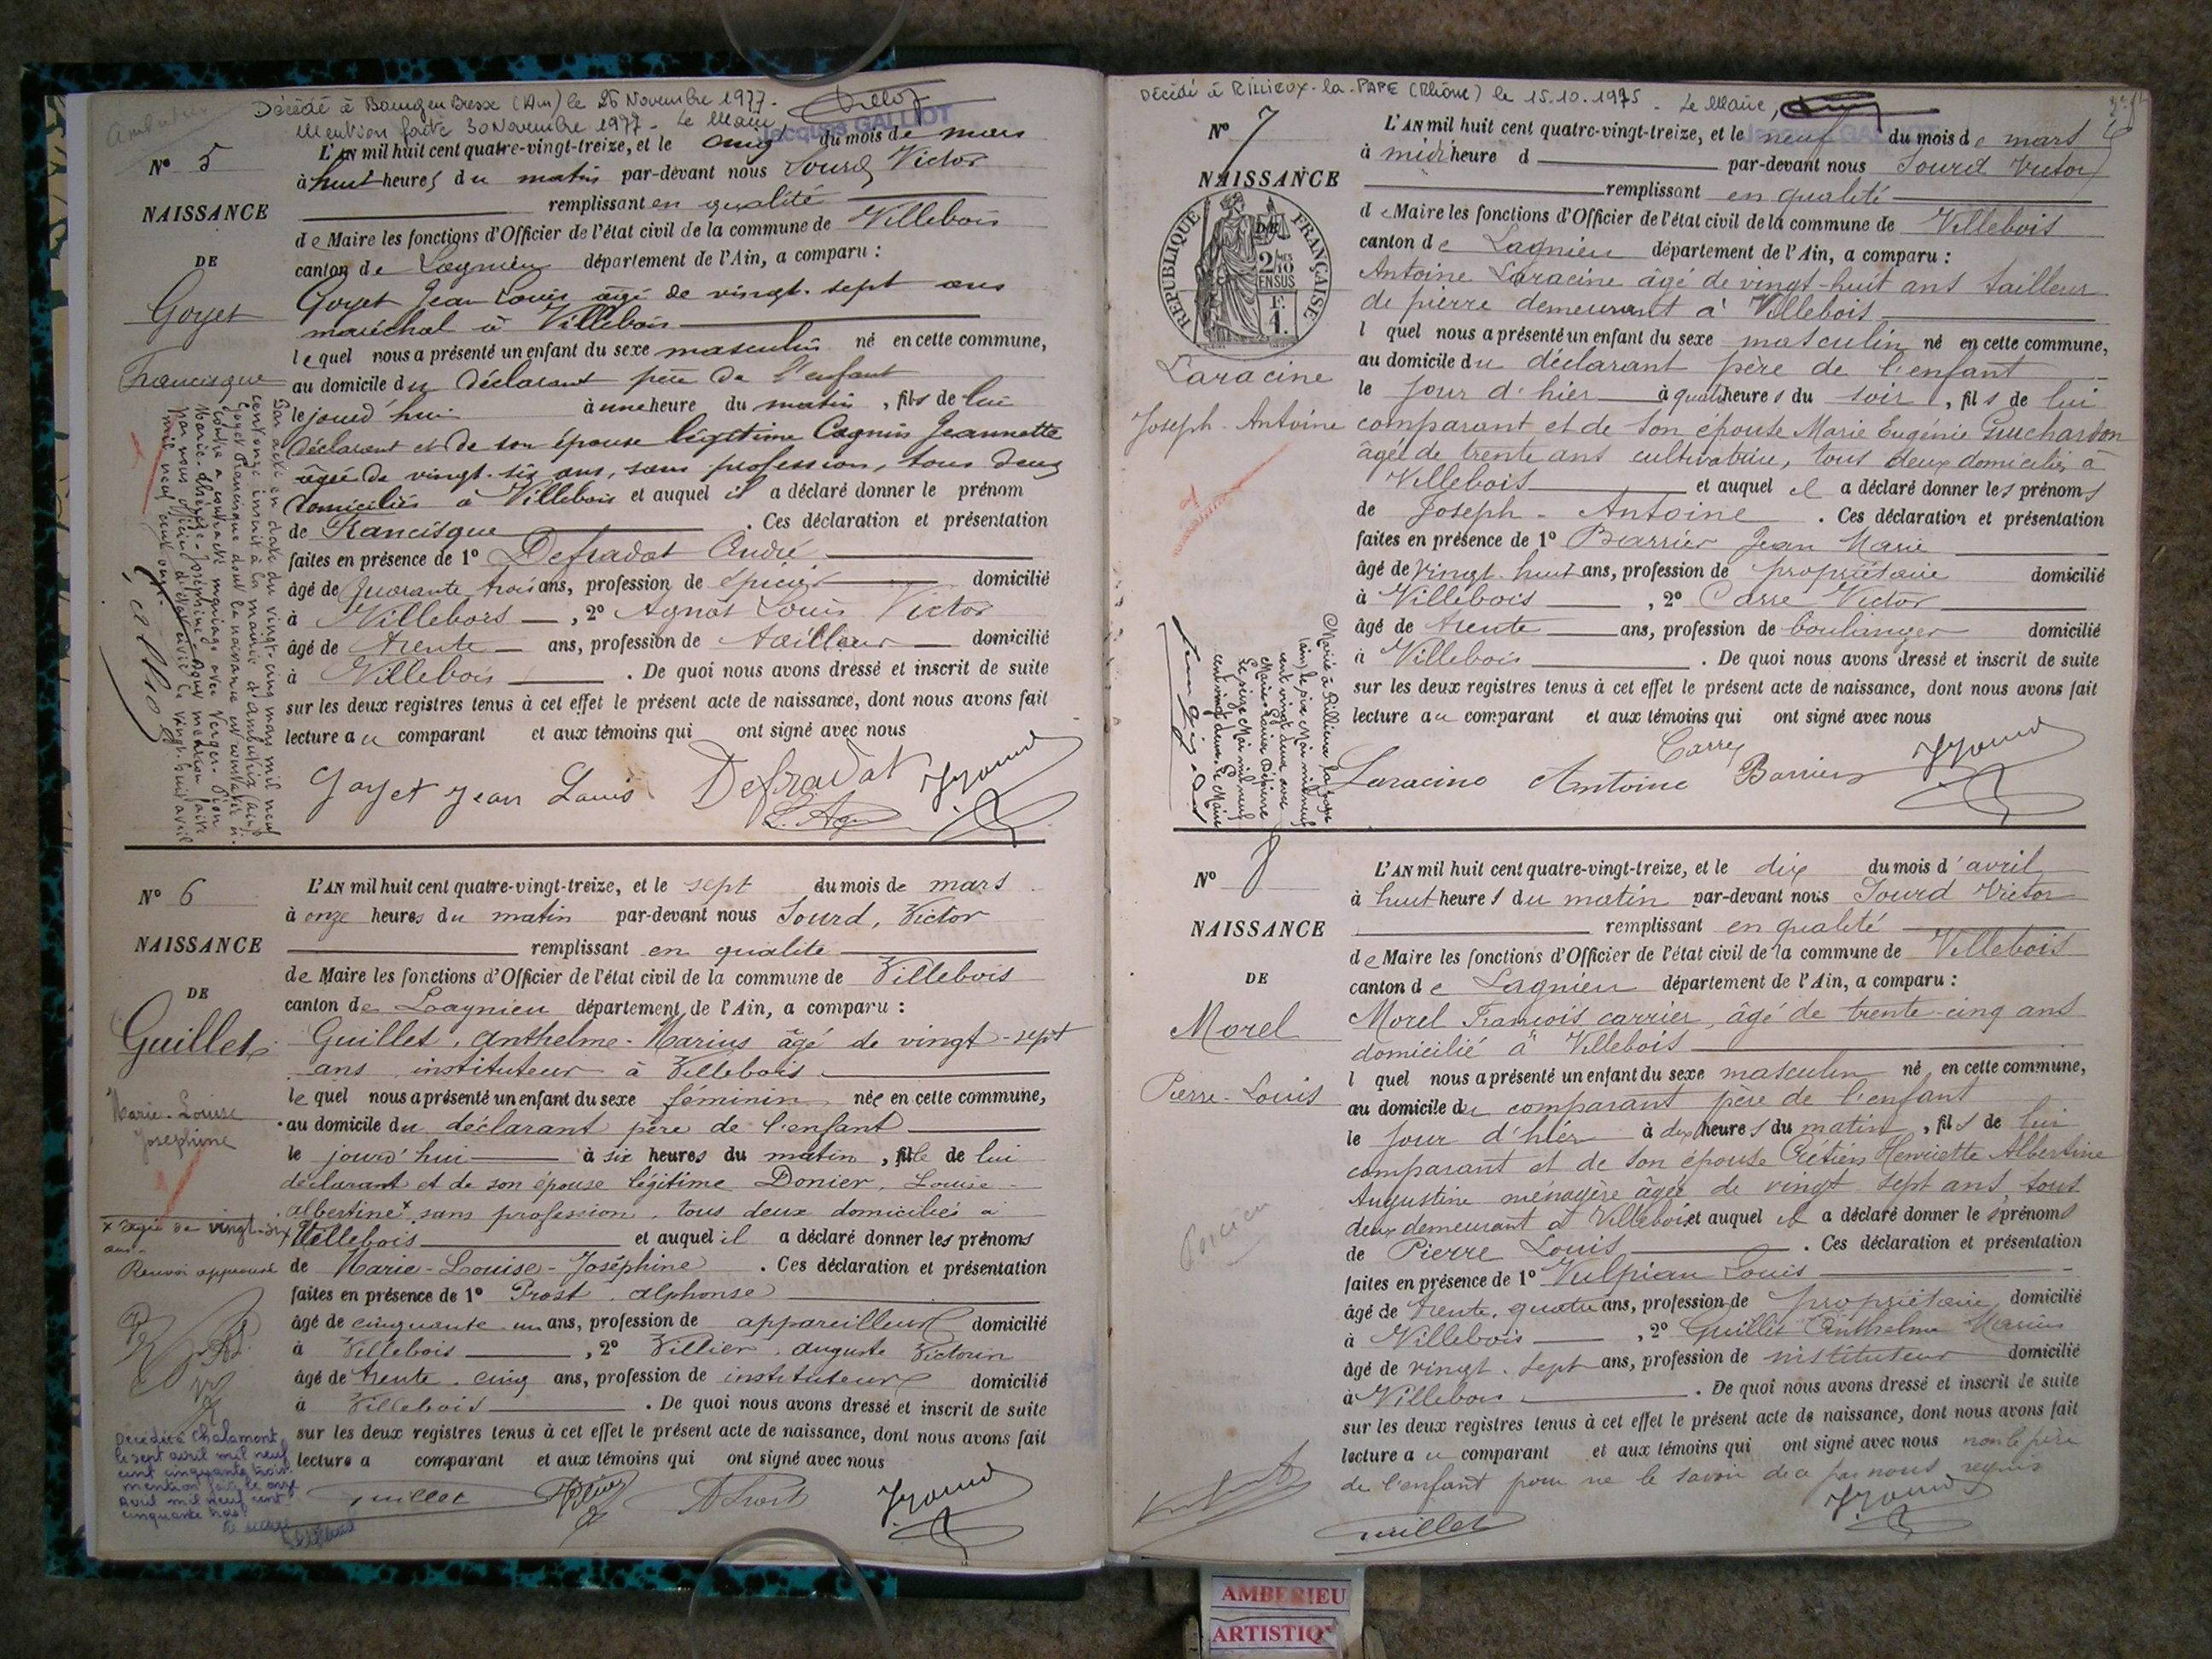 Décédé à Bourg en Bresse (Ain) le 26 Novembre 1977.
Mention faite 30 Novembre 1977 - Le Maire
Jacques GALLIOT
N° 5
NAISSANCE
DE
Goyet
Francisque
L'AN mil huit cent quatre-vingt-treize, et le cinq du mois de mars
à huit heures du matin par-devant nous Sourd Victor
remplissant en qualité
de Maire les fonctions d'Officier de l'état civil de la commune de Villebois
canton de Lagnieu département de l'Ain, a comparu :
Goyet Jean Louis âgé de vingt-sept ans
maréchal à Villebois
le quel nous a présenté un enfant du sexe masculin né en cette commune,
au domicile du déclarant père de l'enfant
le jourd'hui à une heure du matin, fils de lui
déclarant et de son épouse légitime Cagnin Jeannette
âgée de vingt-six ans, sans profession, tous deux
domiciliés à Villebois et auquel il a déclaré donner le prénom
de Francisque . Ces déclaration et présentation
faites en présence de 1° Defradat André
âgé de quarante trois ans, profession de épicier domicilié
à Villebois , 2° Agnès Louis Victor
âgé de trente ans, profession de tailleur domicilié
à Villebois . De quoi nous avons dressé et inscrit de suite
sur les deux registres tenus à cet effet le présent acte de naissance, dont nous avons fait
lecture au comparant et aux témoins qui ont signé avec nous
Goyet Jean Louis Defradat
Par acte en date du vingt-cinq mars mil neuf
cent onze inscrit à la mairie d'Ambutrix (Ain)
Goyet Francisque dont la naissance est constatée ci-
contre a contracté mariage avec
mil neuf cent onze.
N° 6
NAISSANCE
DE
Guillet
Marie-Louise
Joséphine
L'AN mil huit cent quatre-vingt-treize, et le sept du mois de mars
à onze heures du matin par-devant nous Sourd, Victor
remplissant en qualité
de Maire les fonctions d'Officier de l'état civil de la commune de Villebois
canton de Lagnieu département de l'Ain, a comparu :
Guillet, Anthelme-Marius âgé de vingt-sept
ans instituteur à Villebois
le quel nous a présenté un enfant du sexe féminin née en cette commune,
au domicile du déclarant père de l'enfant
le jourd'hui à six heures du matin, fille de lui
déclarant et de son épouse légitime Donier, Louise-
albertine x sans profession, tous deux domiciliés à
Villebois et auquel il a déclaré donner les prénoms
de Marie-Louise-Joséphine . Ces déclaration et présentation
faites en présence de 1° Prost, alphonse
âgé de cinquante un ans, profession de appareilleur domicilié
à Villebois , 2° Villier, auguste Victorin
âgé de trente-cinq ans, profession de instituteur domicilié
à Villebois . De quoi nous avons dressé et inscrit de suite
sur les deux registres tenus à cet effet le présent acte de naissance, dont nous avons fait
lecture a comparant et aux témoins qui ont signé avec nous
x âgée de vingt-six
ans.
Renvoi approuvé
Décédée à Chalamont
le sept avril mil neuf
cent cinquante trois.
mention faite le onze
avril mil neuf cent
cinquante trois
Guillet Villier A Prost
Décédé à RILLIEUX-la-PAPE (Rhône) le 15.10.1975 - Le Maire,
N° 7
NAISSANCE
RÉPUBLIQUE FRANÇAISE
DE
2/10
EN SUS
1F.
Laracine
Joseph-Antoine
L'AN mil huit cent quatre-vingt-treize, et le neuf du mois de mars
à midi heure d par-devant nous Sourd Victor
remplissant en qualité
de Maire les fonctions d'Officier de l'état civil de la commune de Villebois
canton de Lagnieu département de l'Ain, a comparu :
Antoine Laracine âgé de vingt-huit ans tailleur
de pierre demeurant à Villebois
l quel nous a présenté un enfant du sexe masculin né en cette commune,
au domicile du déclarant père de l'enfant
le jour d'hier à quatre heures du soir, fils de lui
comparant et de son épouse Marie Eugénie Guichardon
âgée de trente ans cultivatrice, tous deux domiciliés à
Villebois et auquel il a déclaré donner les prénoms
de Joseph-Antoine . Ces déclaration et présentation
faites en présence de 1° Barrier Jean Marie
âgé de vingt-huit ans, profession de propriétaire domicilié
à Villebois , 2° Carre Victor
âgé de trente ans, profession de boulanger domicilié
à Villebois . De quoi nous avons dressé et inscrit de suite
sur les deux registres tenus à cet effet le présent acte de naissance, dont nous avons fait
lecture au comparant et aux témoins qui ont signé avec nous
Carre
Laracine Antoine Barrier
Marié à Rillieux la pape
(Ain) le six Mai mil neuf
cent vingt deux avec
Le seize Mai mil neuf
cent vingt deux. Le Maire
N° 8
NAISSANCE
DE
Morel
Pierre-Louis
L'AN mil huit cent quatre-vingt-treize, et le dix du mois d'avril
à huit heures du matin par-devant nous Sourd Victor
remplissant en qualité
de Maire les fonctions d'Officier de l'état civil de la commune de Villebois
canton de Lagnieu département de l'Ain, a comparu :
Morel François carrier, âgé de trente-cinq ans
domicilié à Villebois
l quel nous a présenté un enfant du sexe masculin né en cette commune,
au domicile du comparant père de l'enfant
le jour d'hier à dix heures du matin, fils de lui
comparant et de son épouse Crétien Henriette Albertine
Augustine ménagère âgée de vingt-sept ans, tous
deux demeurant à Villebois et auquel il a déclaré donner les prénoms
de Pierre Louis . Ces déclaration et présentation
faites en présence de 1° Vulpian Louis
âgé de trente-quatre ans, profession de propriétaire domicilié
à Villebois , 2° Guillet Anthelme Marius
âgé de vingt-sept ans, profession de instituteur domicilié
à Villebois . De quoi nous avons dressé et inscrit de suite
sur les deux registres tenus à cet effet le présent acte de naissance, dont nous avons fait
lecture au comparant et aux témoins qui ont signé avec nous non le père
de l'enfant pour ne le savoir de ce par nous requis
Guillet
AMBERIEU
ARTISTIQ